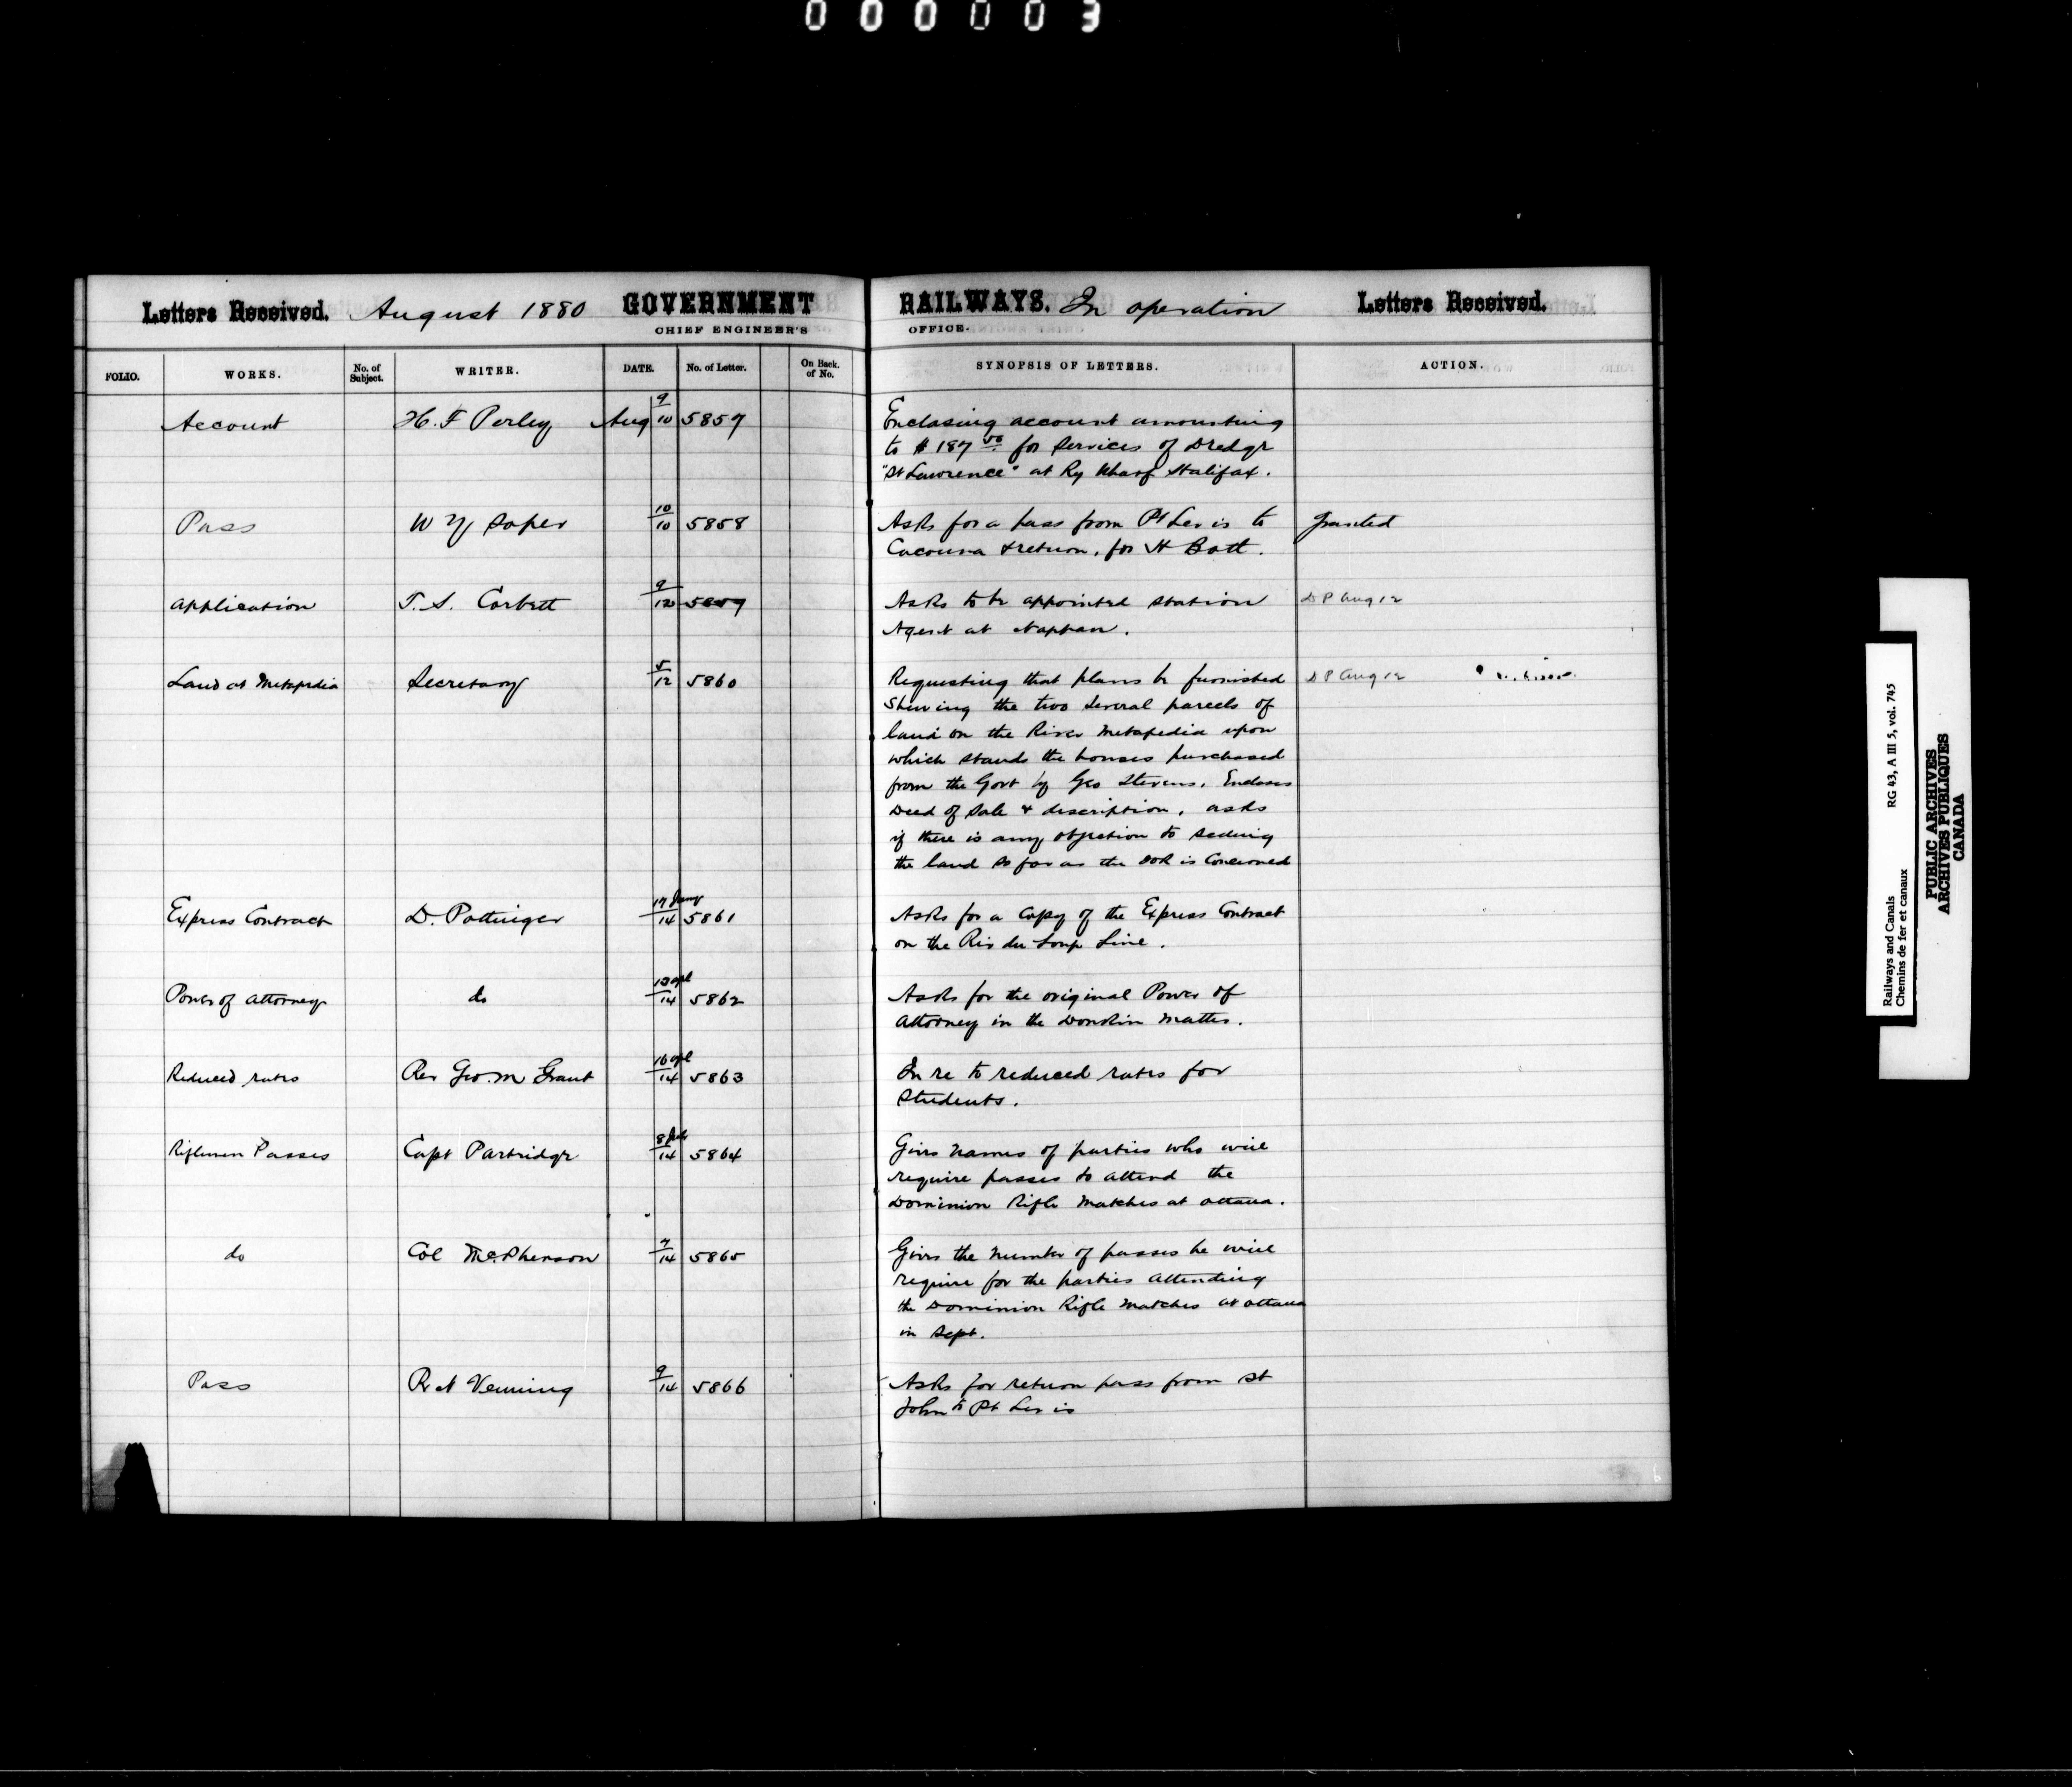 000003
Letters Received. August 1880 GOVERNMENT RAILWAYS. In operation Letters Received.
CHIEF ENGINEER'S OFFICE.
FOLIO. WORKS. No. of Subject. WRITER. DATE. No. of Letter. On Back. of No. SYNOPSIS OF LETTERS. ACTION.
Account H. F Perley Aug 9/10 5857 Enclosing account amounting
to $187 50 for Services of Dredge
"St Lawrence" at Ry Wharf Halifax.
Pass W Y Soper 10/10 5858 Asks for a pass from Pt Levis to Granted
Cacouna & return, for H Batt.
Application T. S. Corbett 9/12 5859 Asks to be appointed Station D P Aug 12
Agent at Nappan.
Land at Metapedia Secretary 5/12 5860 Requesting that plans be furnished D P Aug 12
Shewing the two several parcels of
land on the River Metapedia upon
which stands the houses purchased
from the Govt by Geo Stevens. Encloses
Deed of Sale & description. asks
if there is any objection to
the land so far as the is Concerned
Express Contract D. Pottinger 17 Jany/14 5861 Asks for a Copy of the Express Contract
on the Riv du Loup Line.
Power of Attorney do 13 apl/14 5862 Asks for the original Power of
Attorney in the Donkin Matter.
Reduced rates Rev Geo. M Grant 16 apl/14 5863 In re to reduced rates for
Students.
Riflemen Passes Capt Partridge 8/14 5864 Gives names of parties who will
require passes to attend the
Dominion Rifle Matches at Ottawa.
do Col McPherson 7/14 5865 Gives the number of passes he will
require for the parties attending
the Dominion Rifle Matches at Ottawa
in Sept.
Pass R N Venning 9/14 5866 Asks for return pass from St
John to Pt Levis
Railways and Canals RG 43, A III 5, vol. 745
Chemins de fer et canaux
PUBLIC ARCHIVES
ARCHIVES PUBLIQUES
CANADA